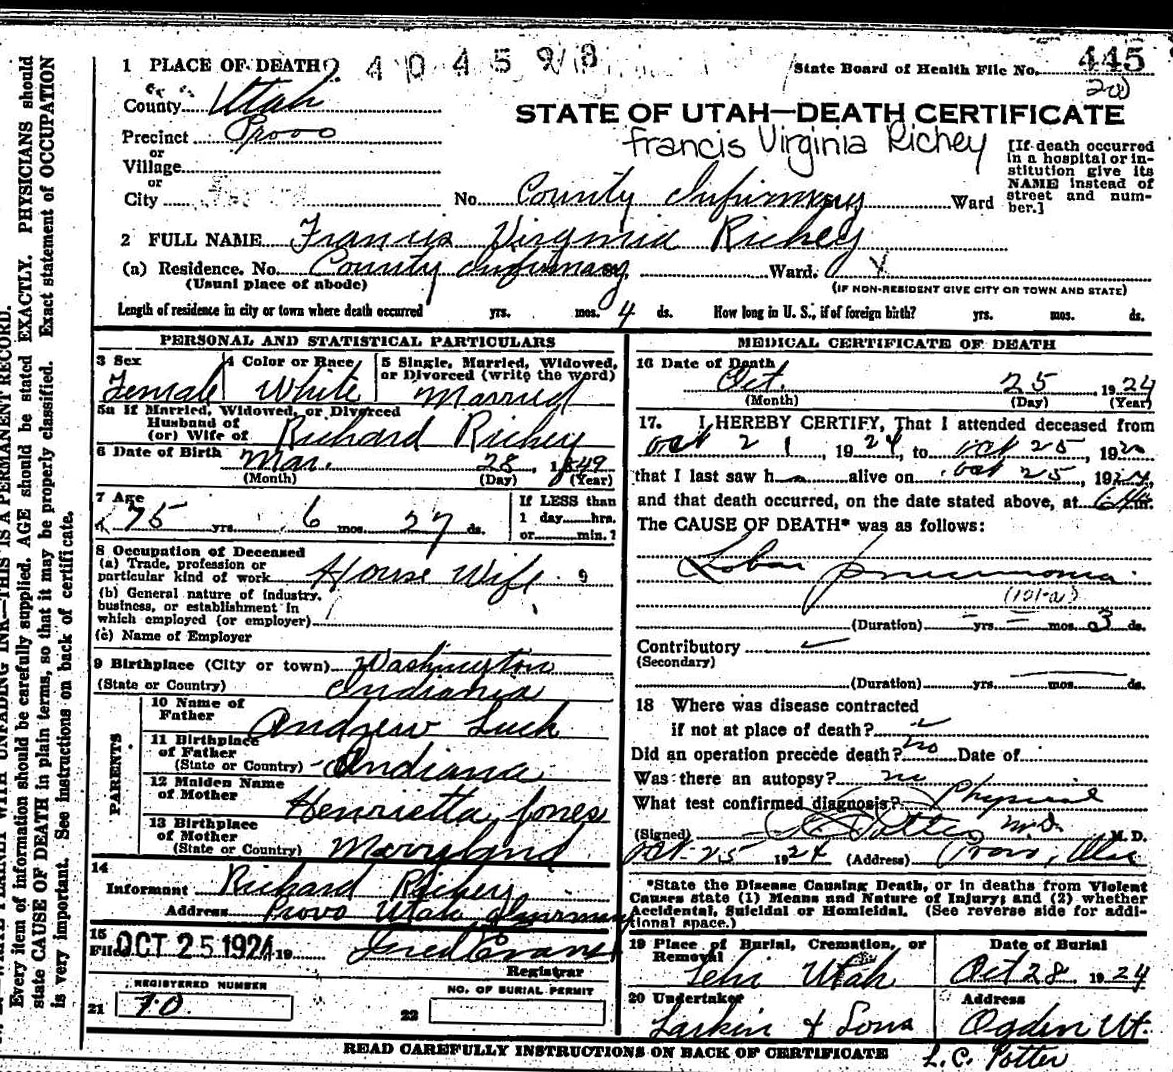 1 PLACE OF DEATH 2404598
State Board of Health File No. 445
County Utah
STATE OF UTAH—DEATH CERTIFICATE
Precinct Provo
Francis Virginia Richey
or
Village
or
City
No. County Infirmary Ward
[If death occurred in a hospital or institution give its NAME instead of street and number.]
2 FULL NAME Francis Virginia Richey
(a) Residence. No. County Infirmary Ward.
(Usual place of abode)
(IF NON-RESIDENT GIVE CITY OR TOWN AND STATE)
Length of residence in city or town where death occurred yrs. mos. 4 ds. How long in U. S., if of foreign birth? yrs. mos. ds.
PERSONAL AND STATISTICAL PARTICULARS
3 Sex Female
4 Color or Race White
5 Single, Married, Widowed, or Divorced (write the word) Married
5a If Married, Widowed, or Divorced
Husband of
(or) Wife of Richard Richey
6 Date of Birth Mar. 28, 1849
(Month) (Day) (Year)
7 Age
75 yrs. 6 mos. 27 ds.
If LESS than
1 day hrs.
or min.?
8 Occupation of Deceased
(a) Trade, profession or
particular kind of work House Wife
(b) General nature of industry,
business, or establishment in
which employed (or employer)
(c) Name of Employer
9 Birthplace (City or town) Washington
(State or Country) Indiana
PARENTS
10 Name of
Father Andrew Luck
11 Birthplace
of Father
(State or Country) Indiana
12 Maiden Name
of Mother Henrietta Jones
13 Birthplace
of Mother
(State or Country) Marryland
14
Informant Richard Richey
Address Provo Utah
15
Filed OCT 25 1924 19
Registrar
REGISTERED NUMBER
21 70
NO. OF BURIAL PERMIT
22
MEDICAL CERTIFICATE OF DEATH
16 Date of Death
Oct. 25 1924
(Month) (Day) (Year)
17. I HEREBY CERTIFY, That I attended deceased from
Oct 21, 1924, to Oct 25, 192
that I last saw h alive on Oct 25, 1924,
and that death occurred, on the date stated above, at
The CAUSE OF DEATH* was as follows:
Lobar pneumonia
(101-a)
(Duration) yrs. mos. 3 ds.
Contributory
(Secondary)
(Duration) yrs. mos. ds.
18 Where was disease contracted
if not at place of death?
Did an operation precede death? no Date of
Was there an autopsy? no
What test confirmed diagnosis? Physical
(Signed) M. D.
Oct-25 1924 (Address) Provo, Utah
*State the Disease Causing Death, or in deaths from Violent
Causes state (1) Means and Nature of Injury; and (2) whether
Accidental, Suicidal or Homicidal. (See reverse side for additional space.)
19 Place of Burial, Cremation, or
Removal
Lehi Utah
Date of Burial
Oct 28 1924
20 Undertaker
Larkin & Sons
Address
Ogden Ut.
READ CAREFULLY INSTRUCTIONS ON BACK OF CERTIFICATE
L.C. Potter
Every item of information should be carefully supplied. AGE should be stated EXACTLY. PHYSICIANS should
state CAUSE OF DEATH in plain terms, so that it may be properly classified. Exact statement of OCCUPATION
is very important. See instructions on back of certificate.
WITH UNFADING INK—THIS IS A PERMANENT RECORD.